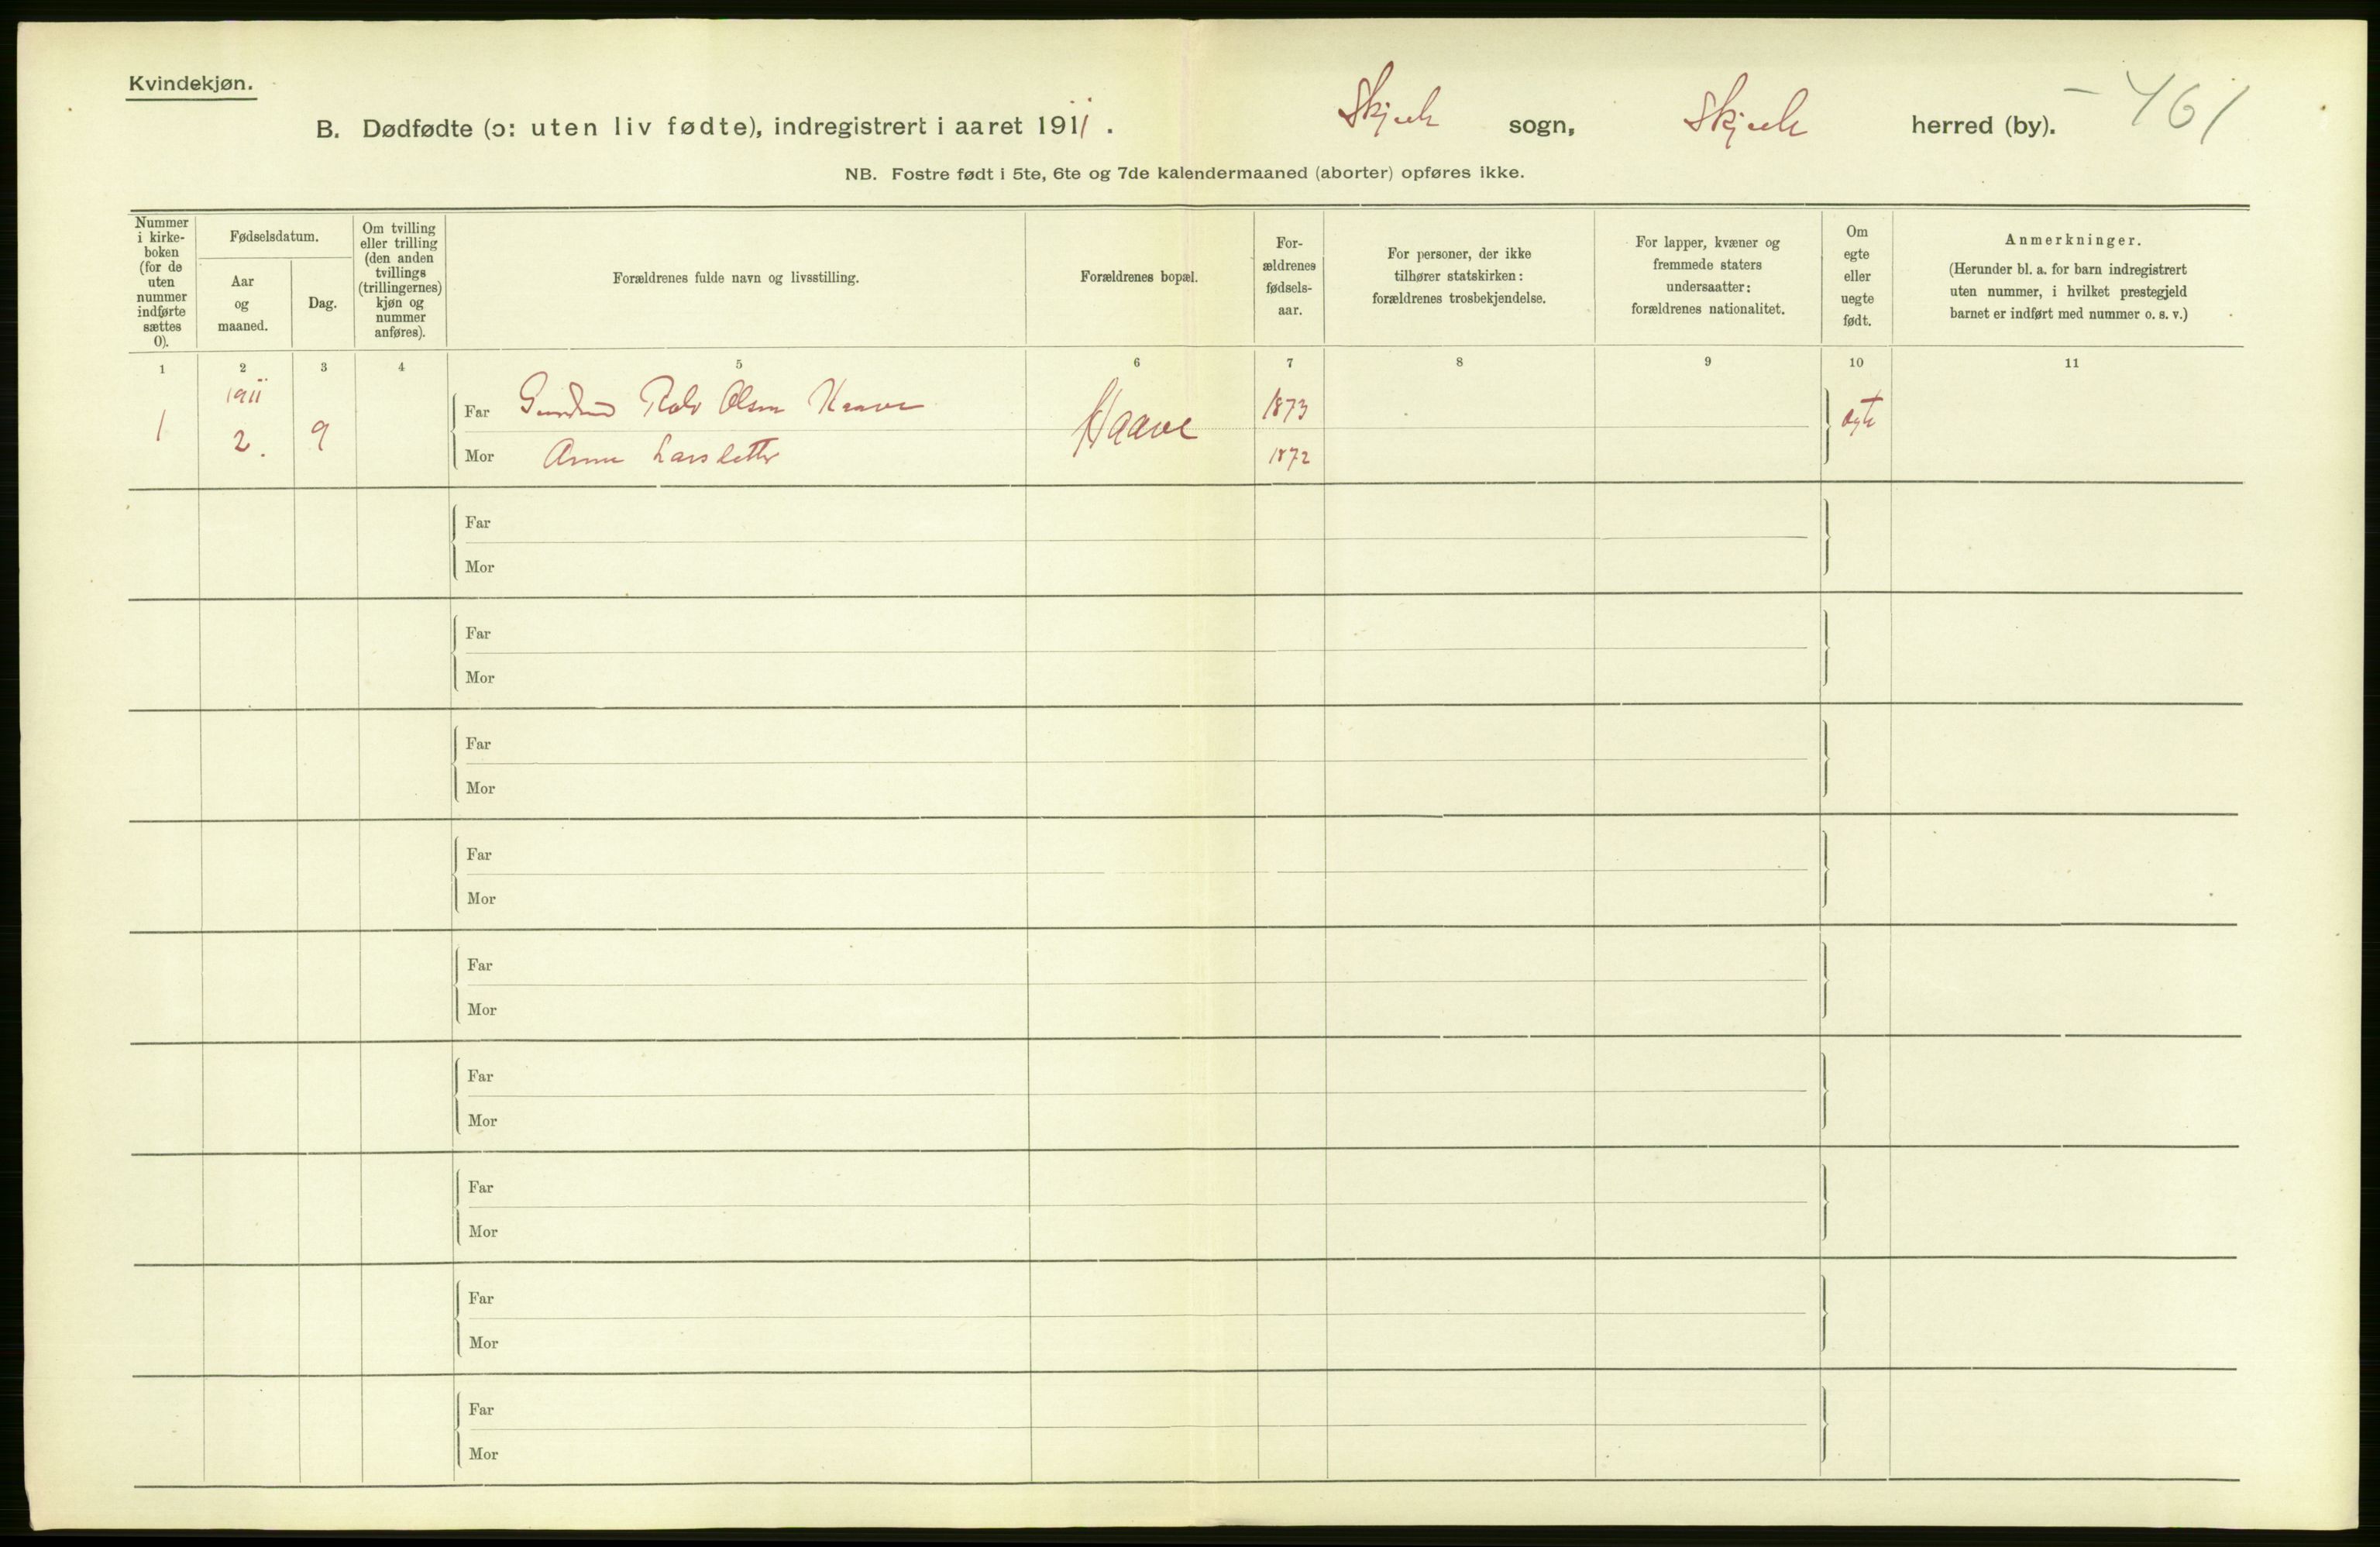 Kvindekjøn.
B. Dødfødte (ɔ: uten liv fødte), indregistrert i aaret 1911. Skjaak sogn, Skjaak herred (by). – 461
NB. Fostre født i 5te, 6te og 7de kalendermaaned (aborter) opføres ikke.
Nummer i kirke-boken (for de uten nummer indførte sættes 0).
Fødselsdatum.
Aar og maaned.
Dag.
Om tvilling eller trilling (den anden tvillings (trillingernes) kjøn og nummer anføres).
Forældrenes fulde navn og livsstilling.
Forældrenes bopæl.
For-ældrenes fødsels-aar.
For personer, der ikke tilhører statskirken: forældrenes trosbekjendelse.
For lapper, kvæner og fremmede staters undersaatter: forældrenes nationalitet.
Om egte eller uegte født.
Anmerkninger.
(Herunder bl. a. for barn indregistrert uten nummer, i hvilket prestegjeld barnet er indført med nummer o. s. v.)
1 2 3 4 5 6 7 8 9 10 11
1911
Far Rolv Olsen Haave 1873
1 2. 9 Haave egte
Mor Anne Larsdatter 1872
Far
Mor
Far
Mor
Far
Mor
Far
Mor
Far
Mor
Far
Mor
Far
Mor
Far
Mor
Far
Mor